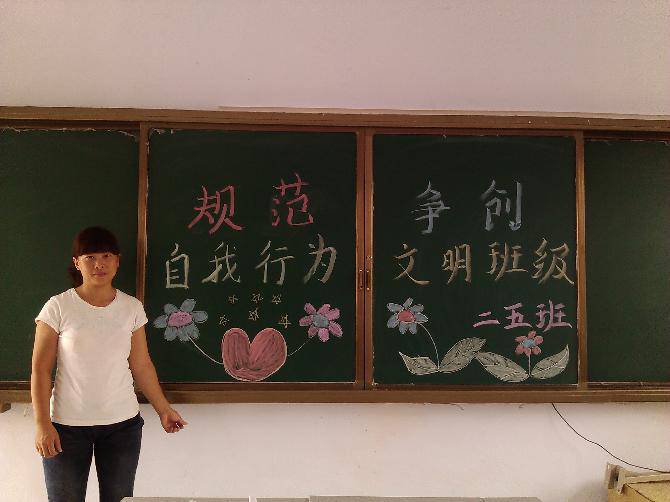 规范
自我行为
争创
文明班级
二五班